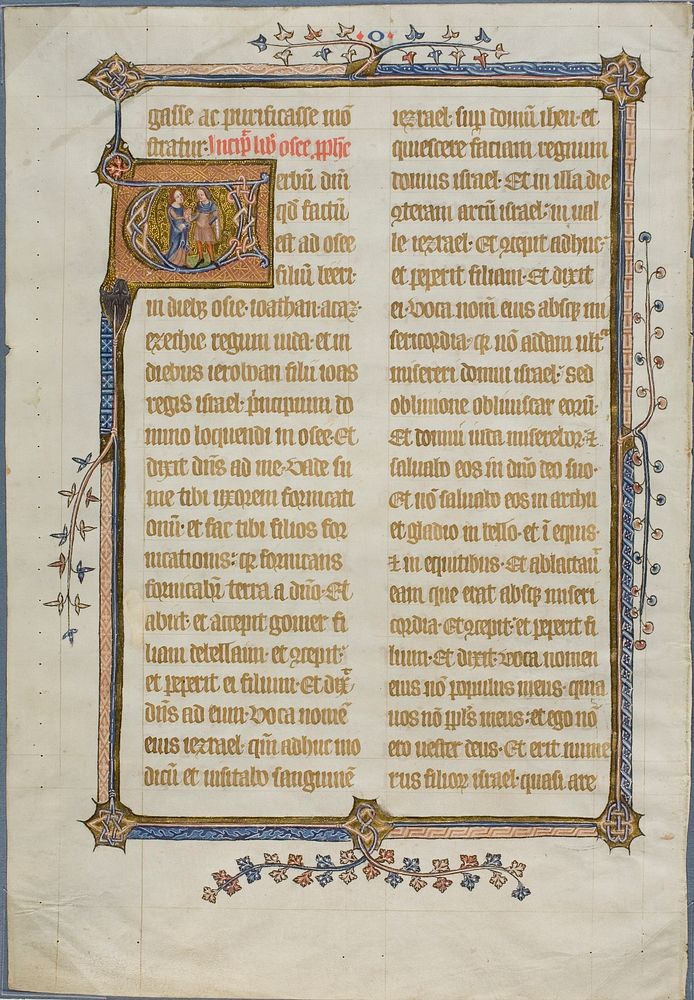 O
gasse ac purificasse mõ
stratur. Incip̃ lib̃ osee ꝓph̃e
Verbũ dñi
qð factũ
est ad osee
filiũ beeri.
in dieb; osie. ioathan. acaz.
ezechie regum iuda. et in
diebus ieroboan filii ioas
regis israel. p̃ncipium do
mino loquendi in osee. Et
dixit dñs ad me. Vade su
me tibi uxorem fornicati
onũ. et fac tibi filios for
nicationis: qꝛ fornicans
fornicabit̃ terra a dño. Et
abiit. et accepit gomer fi
liam debelaim. et ꝯcepit.
et peperit ei filium. Et dix̃
dñs ad eum. Voca nomẽ
eius iezrael. qm̃ adhuc mo
dicũ et uisitabo sanguinẽ
iezrael. sup domũ iheu. et
quiescere faciam regnum
domus israel. Et in illa die
ꝯteram arcũ israel. in ual
le iezrael. Et ꝯcepit adhuc.
et peperit filiam. Et dixit
ei. Voca nom̃ eius absq; mi
sericordia. qꝛ nõ addam ult̃
misereri domui israel. sed
obliuione obliuiscar eorũ.
Et domui iuda miserebor. ⁊
saluabo eos in dño deo suo.
Et nõ saluabo eos in archu
et gladio in bello. et ĩ equis.
⁊ in equitibus. Et ablactau̾
eam que erat absq; miseri
cordia. Et ꝯcepit. et peperit fi
lium. Et dixit. Voca nomen
eius nõ populus meus. quia
uos nõ ppl̃s meus: et ego nõ
ero uester deus. Et erit nume
rus filioꝝ israel. quasi are